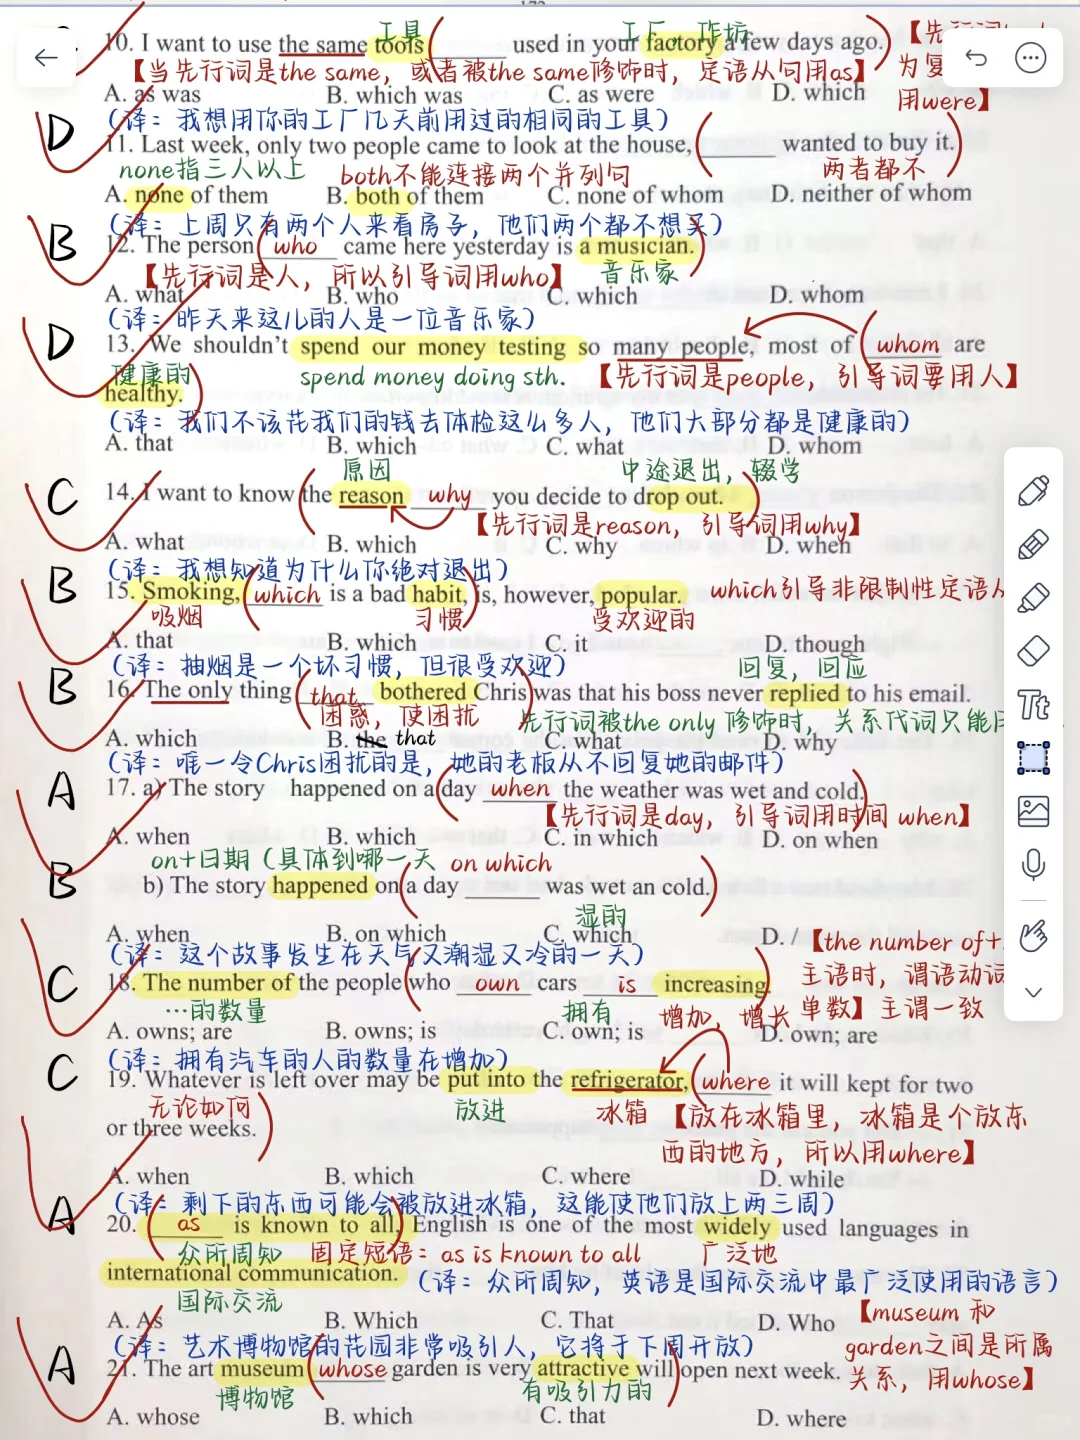 工具
工厂、作坊
10. I want to use the same tools ______ used in your factory a few days ago.
【当先行词是the same，或者被the same修饰时，定语从句用as】
为复
用were】
A. as was B. which was C. as were D. which
（译：我想用你的工厂几天前用过的相同的工具）
D
11. Last week, only two people came to look at the house, ______ wanted to buy it.
none指三人以上 both不能连接两个并列句 两者都不
A. none of them B. both of them C. none of whom D. neither of whom
（译：上周只有两个人来看房子，他们两个都不想买）
B
12. The person who came here yesterday is a musician.
【先行词是人，所以引导词用who】 音乐家
A. what B. who C. which D. whom
（译：昨天来这儿的人是一位音乐家）
D
13. We shouldn't spend our money testing so many people, most of whom are
健康的 spend money doing sth. 【先行词是people，引导词要用人】
healthy.
（译：我们不该花我们的钱去体检这么多人，他们大部分都是健康的）
A. that B. which C. what D. whom
原因 中途退出，辍学
C
14. I want to know the reason why you decide to drop out.
【先行词是reason，引导词用why】
A. what B. which C. why D. when
（译：我想知道为什么你绝对退出）
B
15. Smoking, which is a bad habit, is, however, popular. which引导非限制性定语从
吸烟 习惯 受欢迎的
A. that B. which C. it D. though
（译：抽烟是一个坏习惯，但很受欢迎） 回复，回应
B
16. The only thing that bothered Chris was that his boss never replied to his email.
困惑，使困扰 先行词被the only修饰时，关系代词只能用
A. which B. the that C. what D. why
（译：唯一令Chris困扰的是，她的老板从不回复她的邮件）
A
17. a) The story happened on a day when the weather was wet and cold.
【先行词是day，引导词用时间 when】
A. when B. which C. in which D. on when
on+日期（具体到哪一天 on which
B
b) The story happened on a day ______ was wet an cold.
湿的
A. when B. on which C. which D. /
（译：这个故事发生在天气又潮湿又冷的一天）
【the number of+
主语时，谓语动词
单数】主谓一致
C
18. The number of the people who own cars is increasing
…的数量 拥有 增加，增长
A. owns; are B. owns; is C. own; is D. own; are
（译：拥有汽车的人的数量在增加）
C
19. Whatever is left over may be put into the refrigerator, where it will kept for two
无论如何 放进 冰箱 【放在冰箱里，冰箱是个放东
or three weeks.
西的地方，所以用where】
A. when B. which C. where D. while
（译：剩下的东西可能会被放进冰箱，这能使他们放上两三周）
A
20. as is known to all, English is one of the most widely used languages in
众所周知 固定短语：as is known to all 广泛地
international communication. （译：众所周知，英语是国际交流中最广泛使用的语言）
国际交流
A. As B. Which C. That D. Who
【museum 和
garden之间是所属
关系，用whose】
（译：艺术博物馆的花园非常吸引人，它将于下周开放）
A
21. The art museum whose garden is very attractive will open next week.
博物馆 有吸引力的
A. whose B. which C. that D. where
Tt